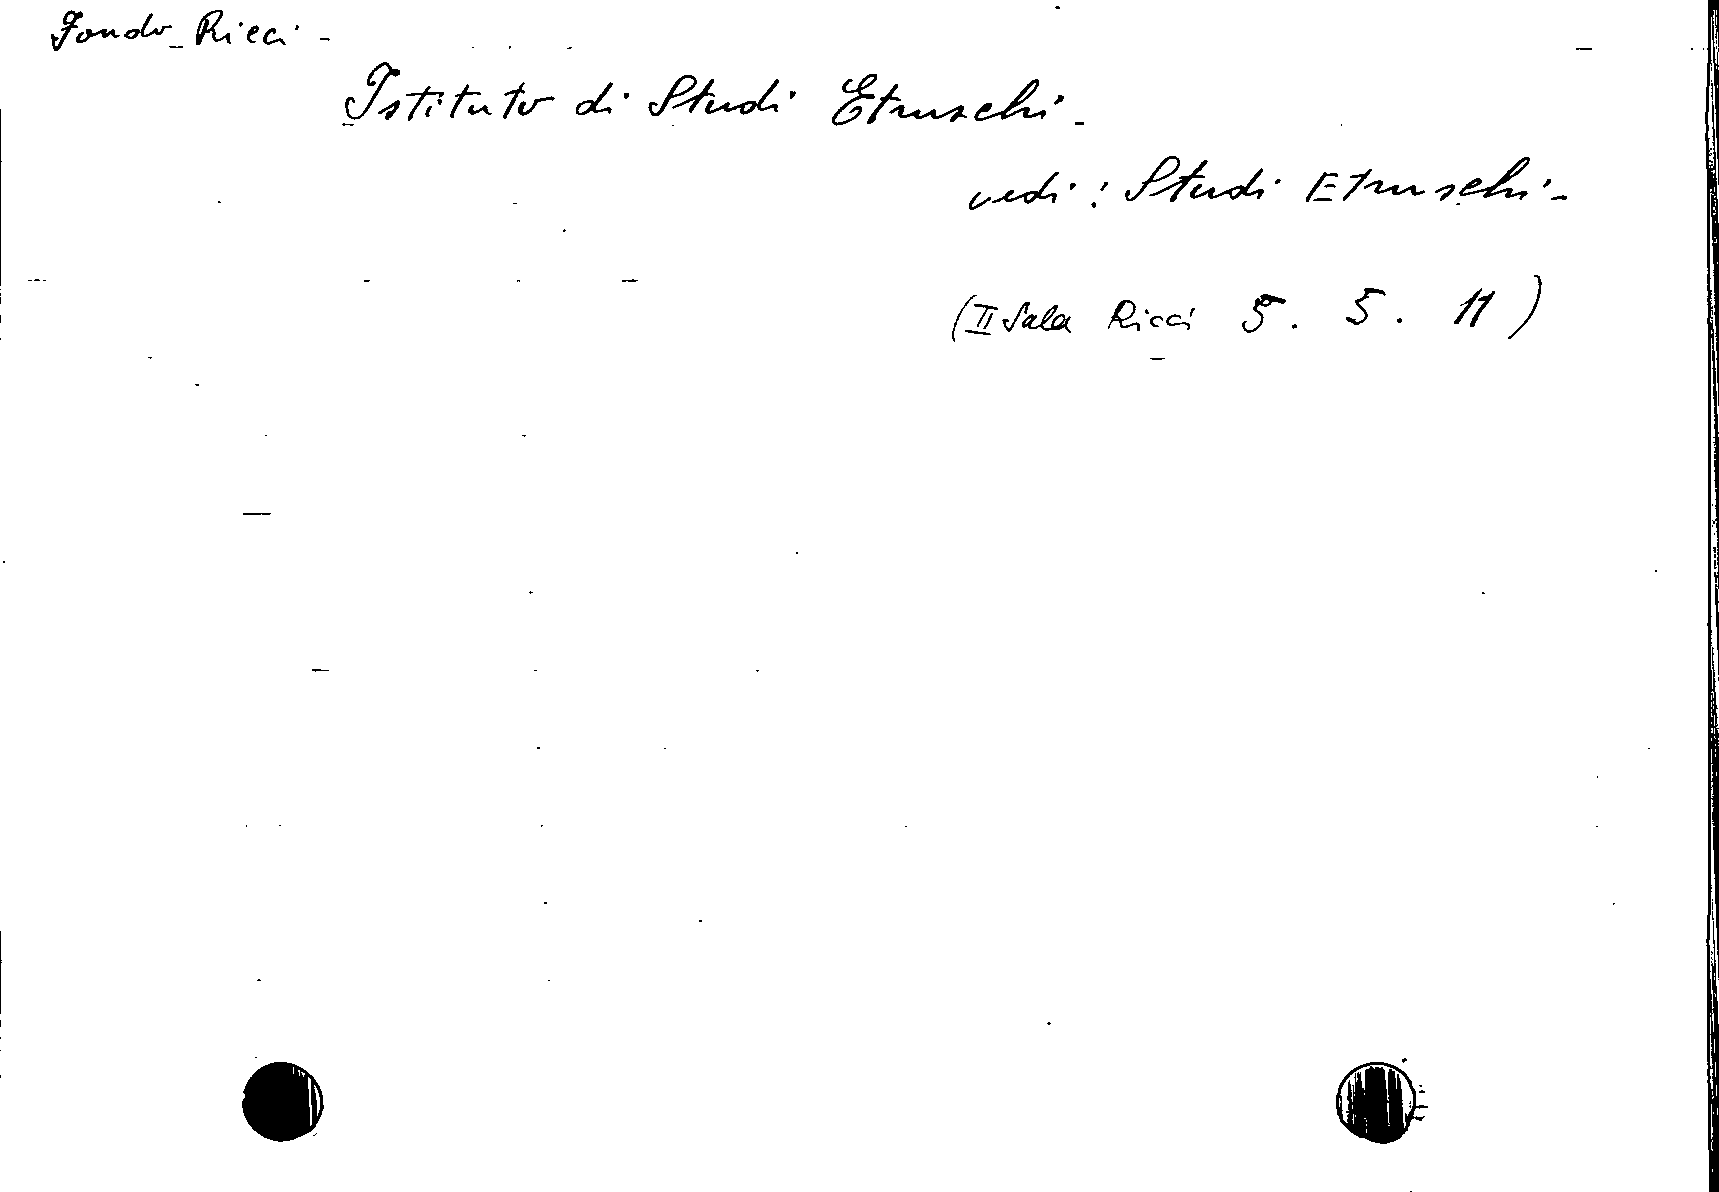 Fondo Ricci -
Istituto di Studi Etruschi -
vedi : Studi Etruschi -
(II Sala Ricci 5. 5. 11)